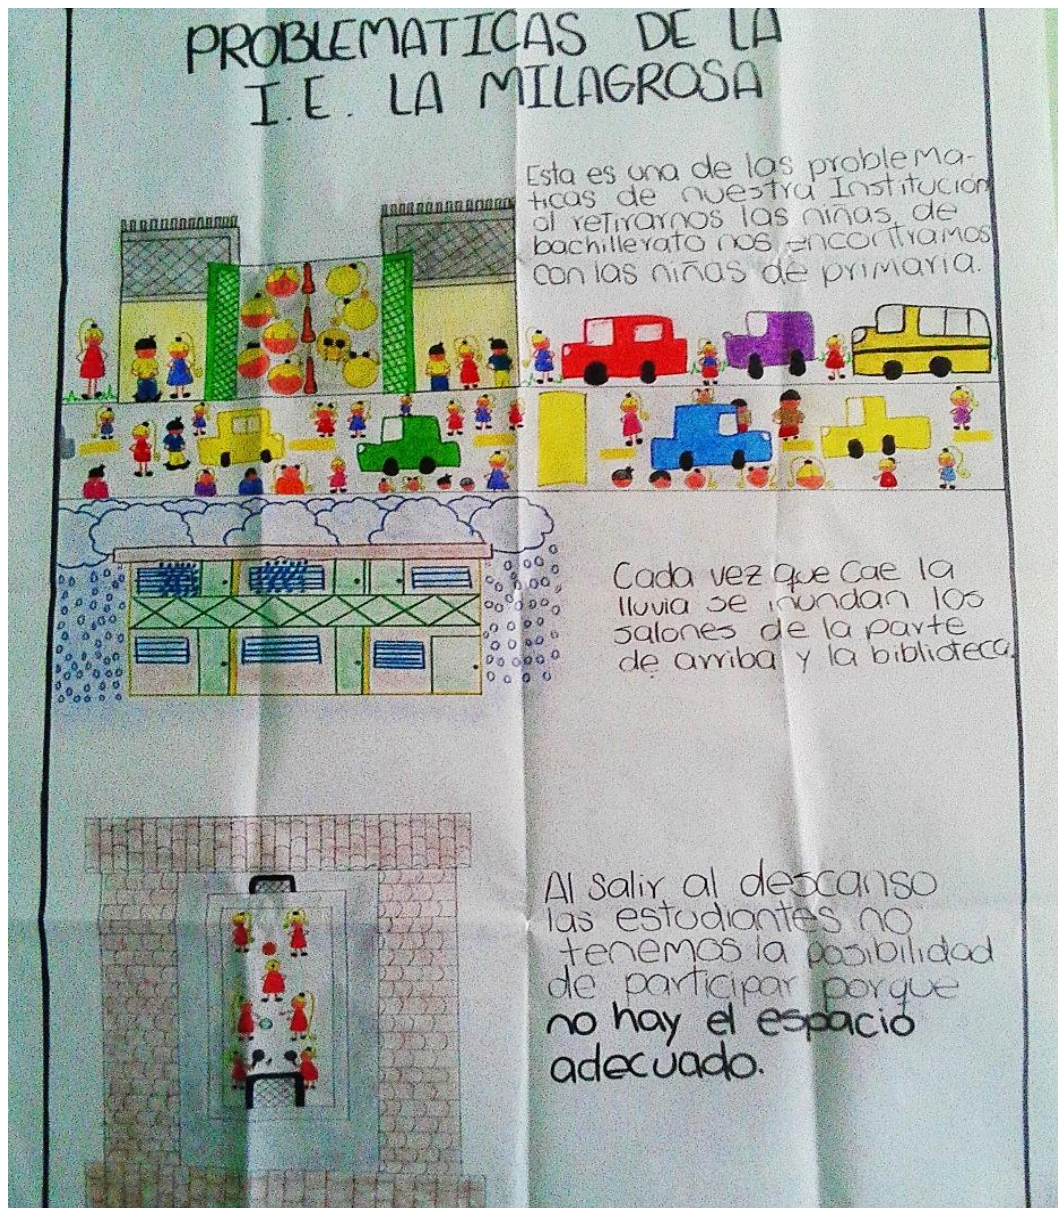 PROBLEMATICAS DE LA
I.E. LA MILAGROSA
Esta es una de las problema-
ticas de nuestra Institución
al retirarnos las niñas de
bachillerato nos encontramos
con las niñas de primaria.
Cada vez que cae la
lluvia se inundan los
salones de la parte
de arriba y la biblioteca.
Al salir al descanso
las estudiantes no
tenemos la posibilidad
de participar porque
no hay el espacio
adecuado.